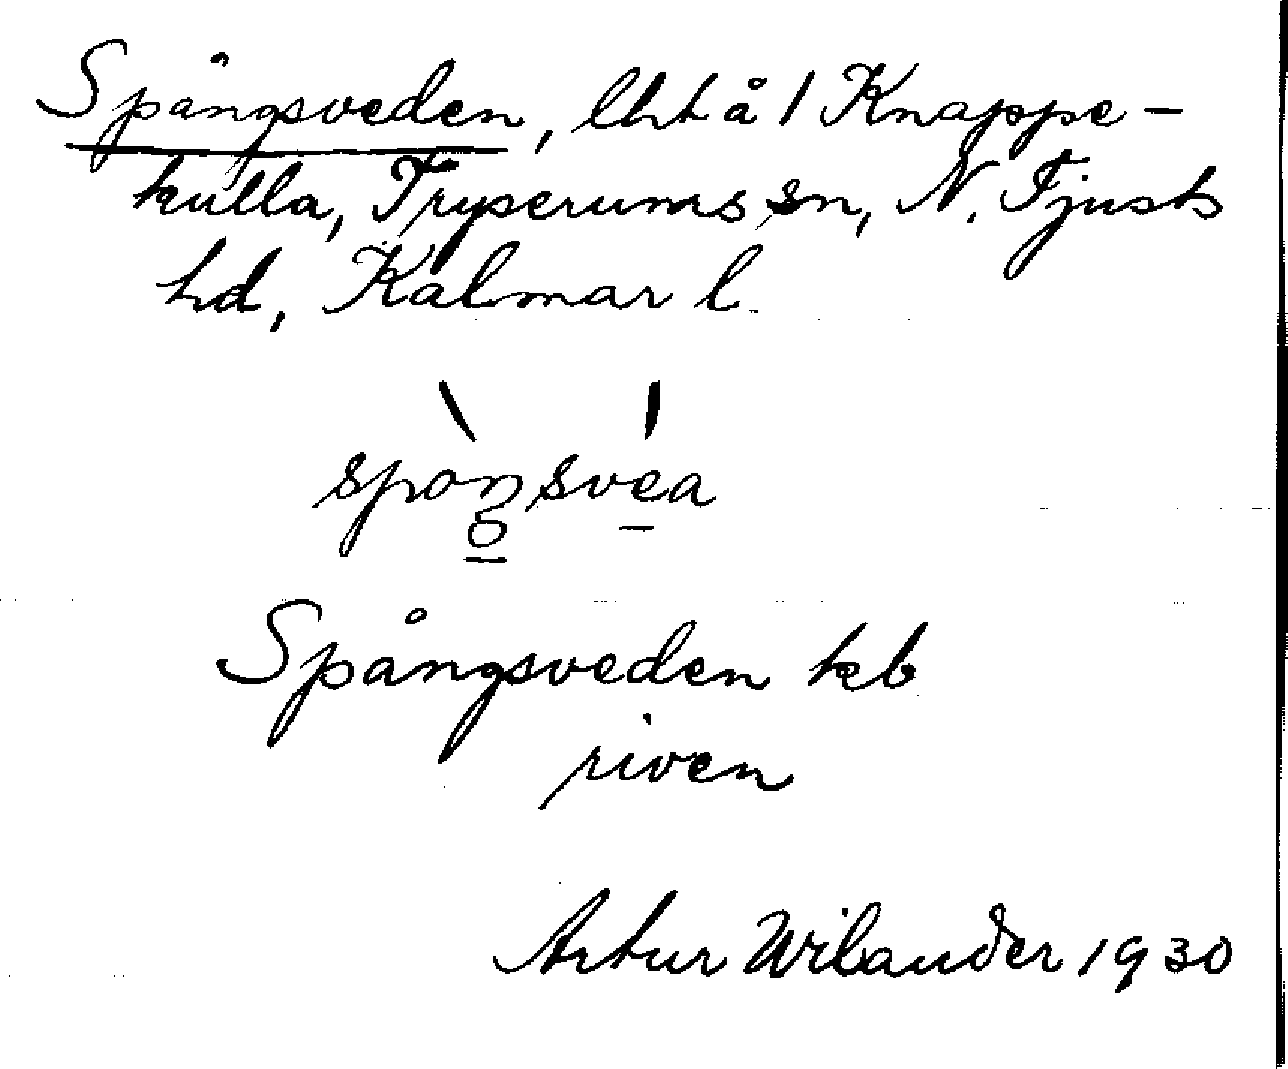 Spångsveden, lht å 1 Knappe-
kulla, Tryserums sn, N. Tjusts
hd, Kalmar l.
spoŋsvea
Spångsveden kb
riven
Artur Wilander 1930